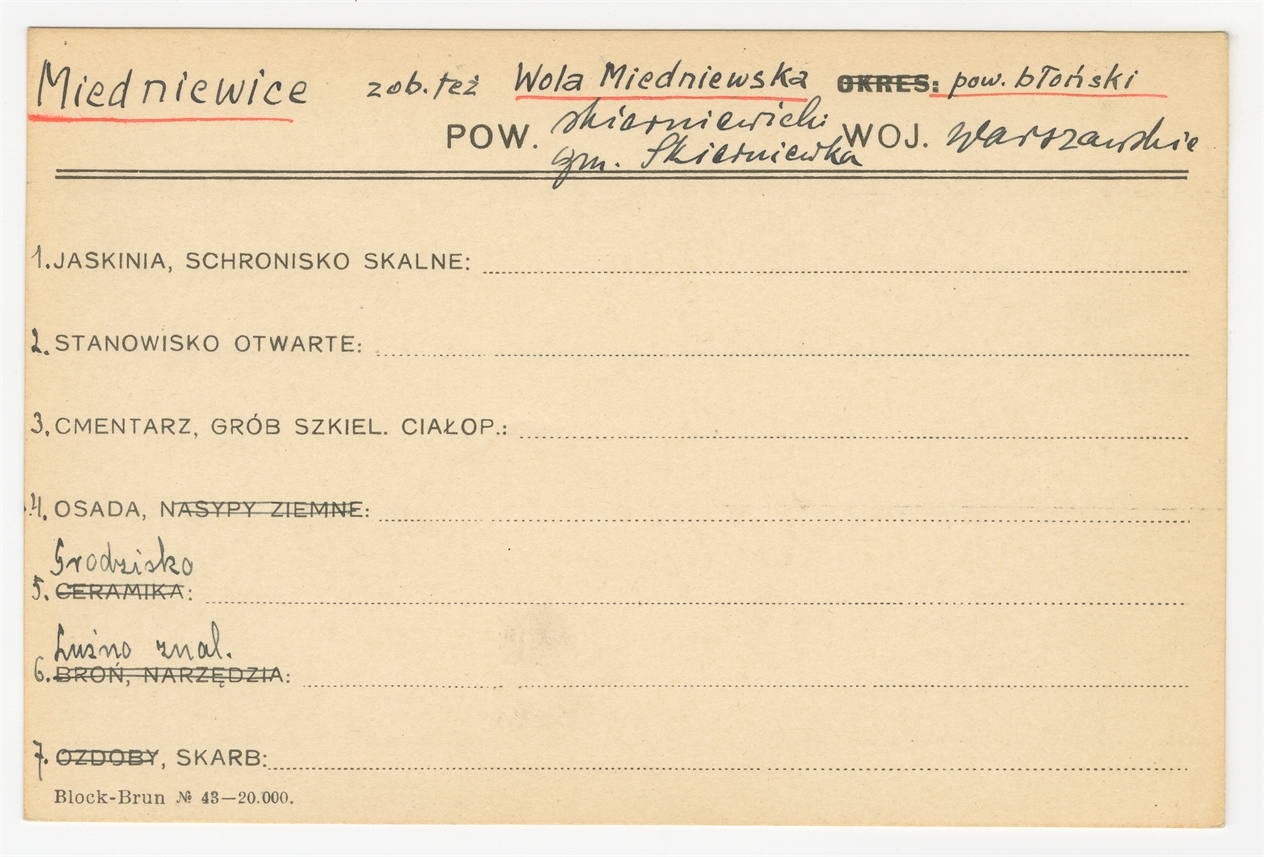 Miedniewice zob. też Wola Miedniewska OKRES: pow. błoński
POW. skierniewicki WOJ. Warszawskie
gm. Skierniewka
1. JASKINIA, SCHRONISKO SKALNE:
2. STANOWISKO OTWARTE:
3. CMENTARZ, GRÓB SZKIEL. CIAŁOP.:
4. OSADA, NASYPY ZIEMNE:
Grodzisko
5. CERAMIKA:
Luźno znal.
6. BROŃ, NARZĘDZIA:
7. OZDOBY, SKARB:
Block-Brun № 43—20.000.